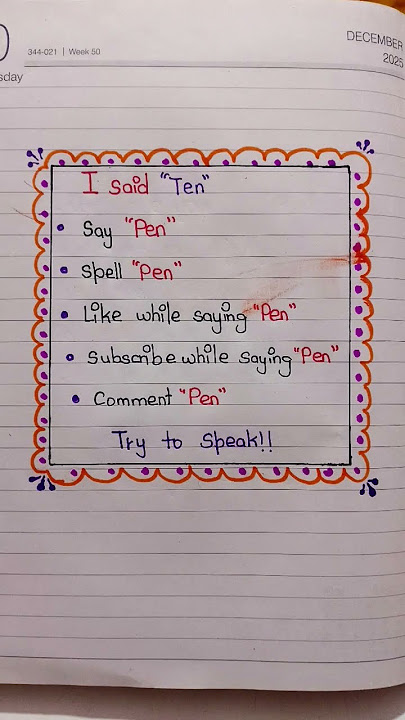 344-021 | Week 50
DECEMBER
2025
I said "Ten"
• Say "Pen"
• Spell "Pen"
• Like while saying "Pen"
• Subscribe while saying "Pen"
• Comment "Pen"
Try to Speak!!